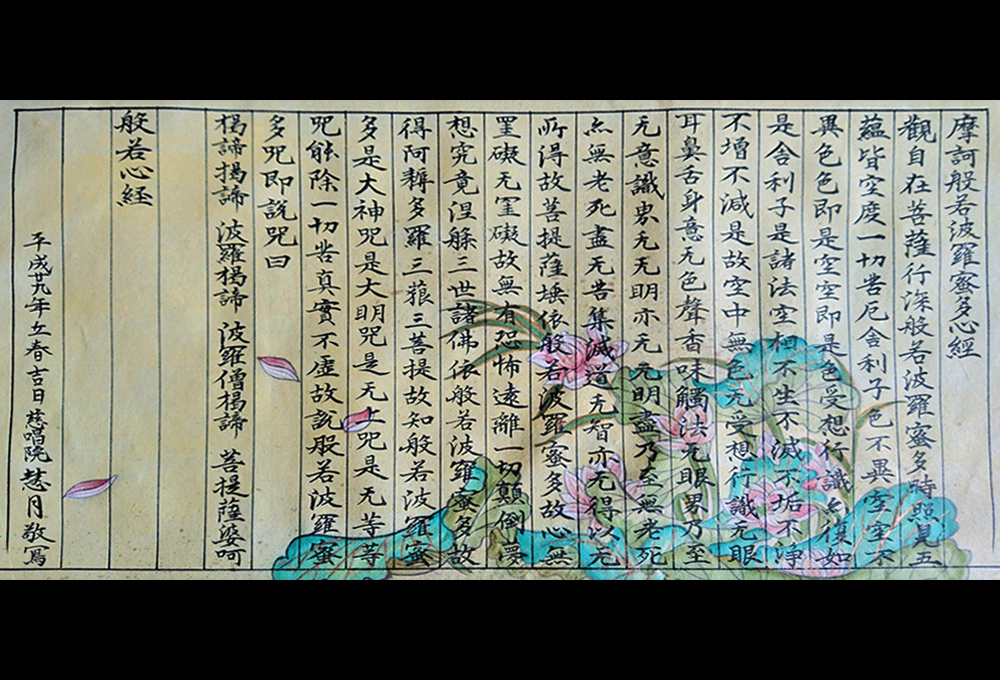 摩訶般若波羅蜜多心經
觀自在菩薩行深般若波羅蜜多時照見五
蘊皆空度一切苦厄舍利子色不異空空不
異色色即是空空即是色受想行識亦復如
是舍利子是諸法空相不生不滅不垢不淨
不增不減是故空中無色无受想行識无眼
耳鼻舌身意无色聲香味觸法无眼界乃至
无意識界无无明亦无无明盡乃至無老死
亦無老死盡无苦集滅道无智亦无得以无
所得故菩提薩埵依般若波羅蜜多故心無
罣礙无罣礙故無有恐怖遠離一切顛倒夢
想究竟涅槃三世諸佛依般若波羅蜜多故
得阿耨多羅三藐三菩提故知般若波羅蜜
多是大神咒是大明咒是无上咒是无等等
咒能除一切苦真實不虛故説般若波羅蜜
多咒即説咒曰
揭諦揭諦 波羅揭諦 波羅僧揭諦 菩提薩婆呵
般若心経
平成廿九年立春吉日 慈唱院 慧月敬寫